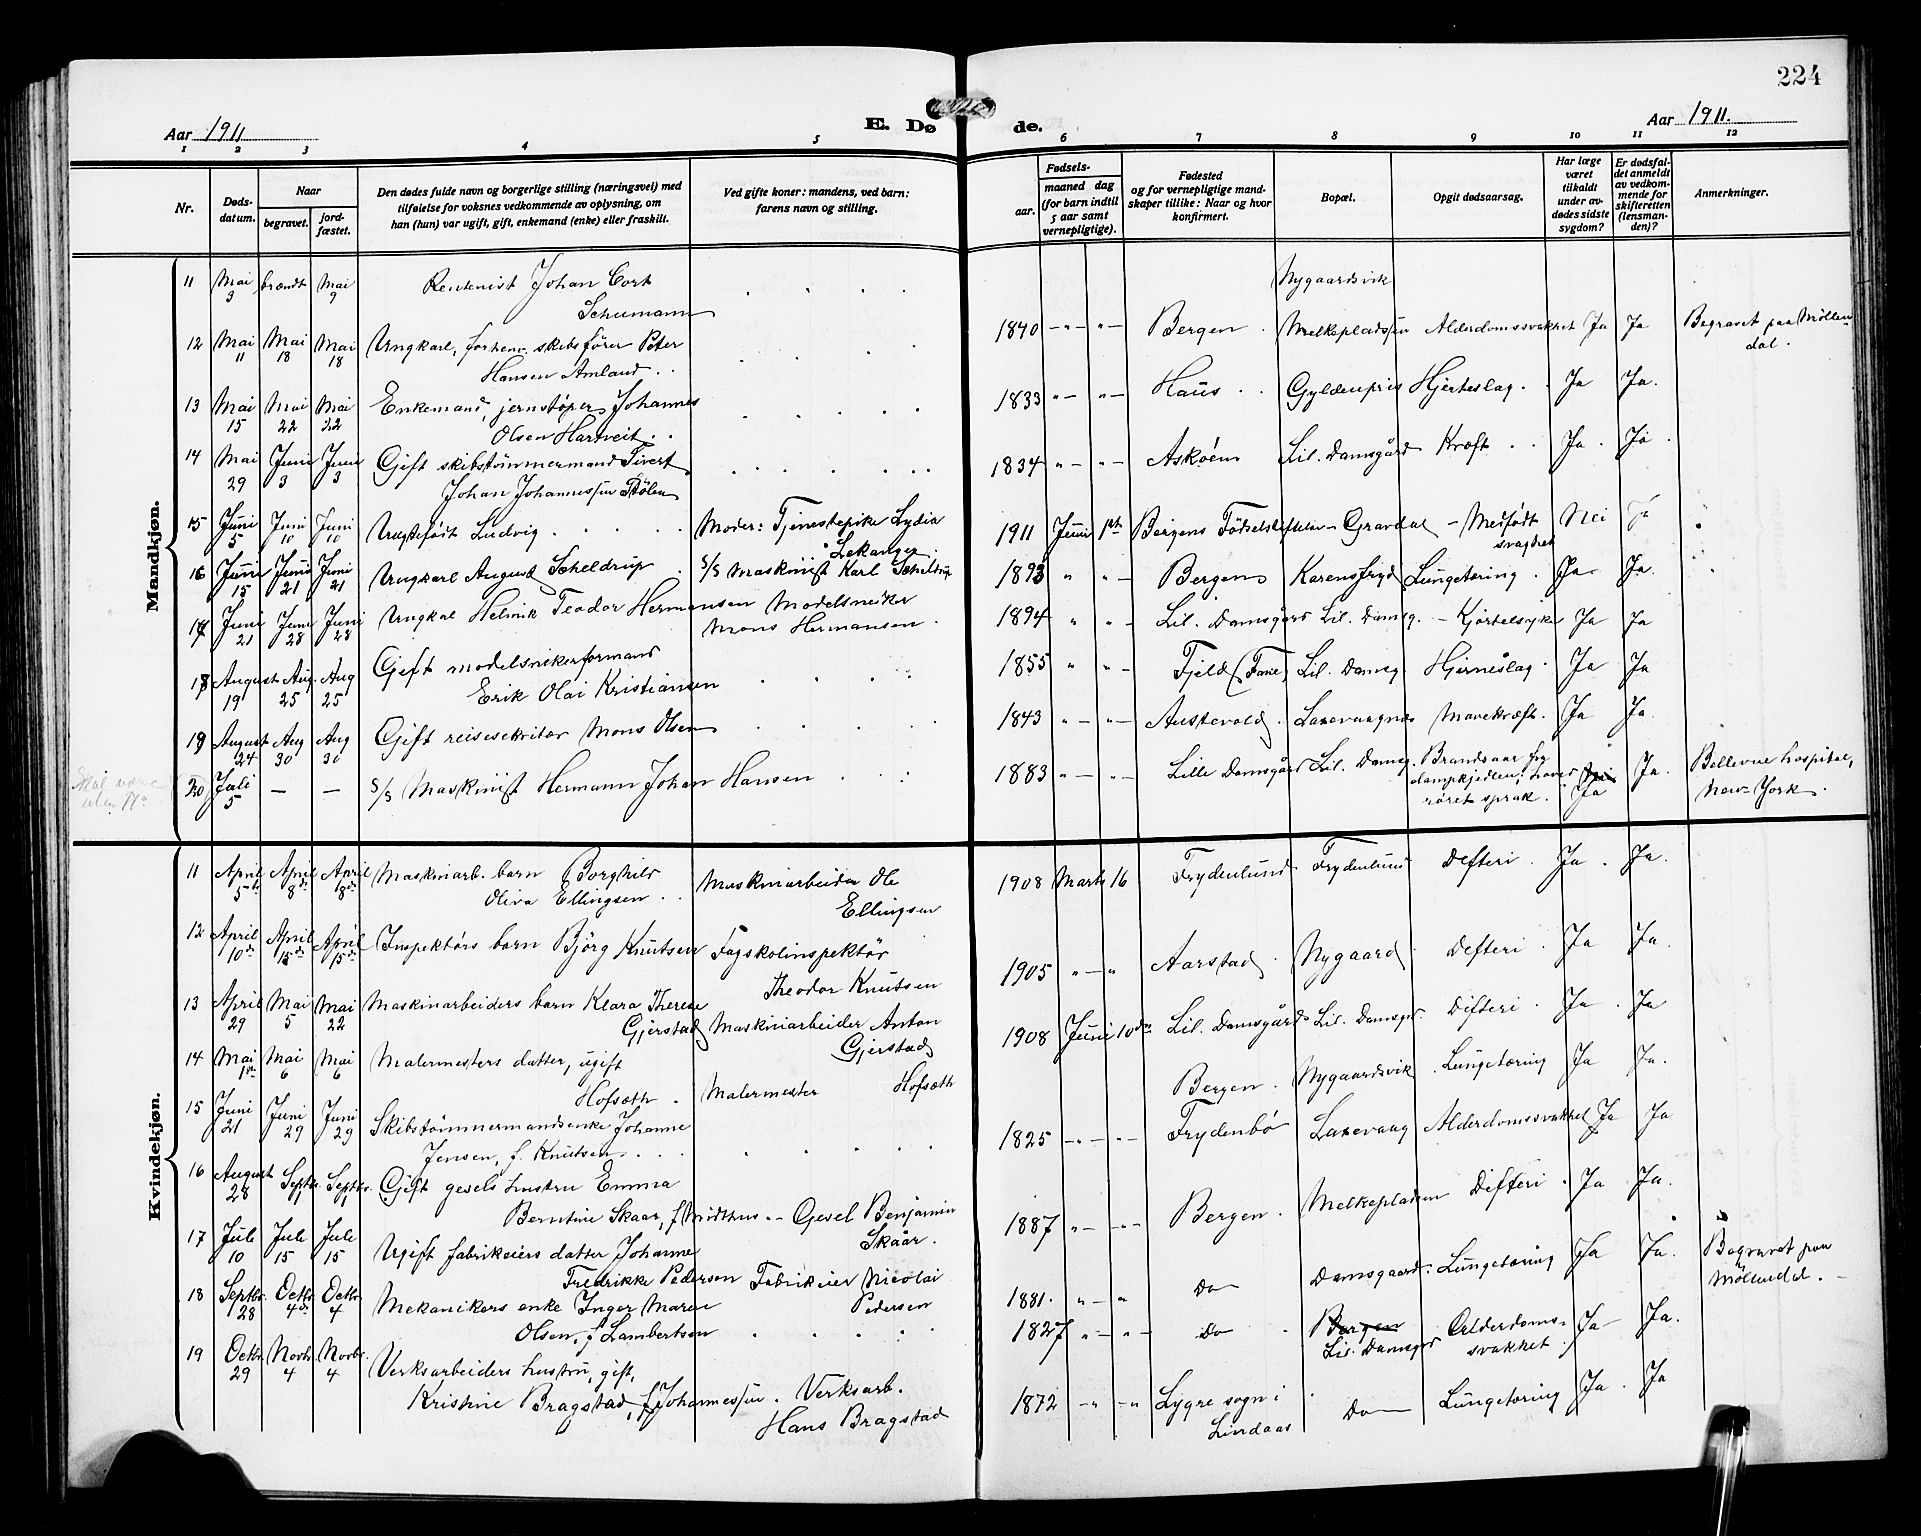 224
Aar 1911
E. Dø
de.
Aar 1911.
1 2 3 4 5 6 7 8 9 10 11 12
Nr.
Døds-
datum.
Naar
begravet.
jord-
fæstet.
Den dødes fulde navn og borgerlige stilling (næringsvei) med
tilføielse for voksnes vedkommende av oplysning, om
han (hun) var ugift, gift, enkemand (enke) eller fraskilt.
Ved gifte koner: mandens, ved barn:
farens navn og stilling.
Fødsels-
aar.
maaned dag
(for barn indtil
5 aar samt
vernepligtige).
Fødested
og for vernepligtige mand-
skaper tillike: Naar og hvor
konfirmert.
Bopæl.
Opgit dødsaarsag.
Har læge
været
tilkaldt
under av-
dødes sidste
sygdom?
Er dødsfal-
det anmeldt
av vedkom-
mende for
skifteretten
(lensman-
den)?
Anmerkninger.
Mandkjøn.
11 Mai 3 brændt Mai 9 Rentenist Johan Cort
Schumann
1840 Bergen. Nygaardsvik
Melkepladsen Alderdomssvakhet Ja Ja Begravet paa Möllen-
dal.
12 Mai 11 Mai 18 Mai 18 Ungkarl, forhenv. skibsförer Peter
Hansen Amland
1833 Haus Gyldenpris Hjerteslag. Ja Ja.
13 Mai 15 Mai 22 Mai 22 Enkemand, jernstøper Johannes
Olsen Hartveit
1834 Askøen Lil. Damsgård Kræft Ja. Ja.
14 Mai 29 Juni 3 Juni 3 Gift skibstömmermand Sivert
Johan Johannessen Stölen
15 Juni 5 Juni 10 Juni 10 Uegtefödt Ludvig Moder: Tjenestepike Lydia
Lekanger.
1911 Juni 1st Bergens Födselsstiftelse - Gravdal - Medfödt
svaghet Nei Ja
16 Juni 15 Juni 21 Juni 21 Ungkarl August Scheldrup S/S Maskinist Karl Scheldrup
1893 Bergen Karensfryd Lungetæring. Ja Ja.
17 Juni 21 Juni 28 Juni 28 Ungkal Helmik Teodor Hermansen Modelsneiker
Mons Hermansen.
1894 Lil. Damsgård Lil. Damsg. - Kjertelsyke Ja Ja
18 August 19 Aug. 25 Aug 25 Gift modelsnikerformand
Erik Olai Kristiansen
1855 Fjeld (Fane) Lil. Damsg Hjerneslag. Ja Ja
19 August 24 Aug 30 Aug 30 Gift reisesekritær Mons Olsen
1843 Austevold. Laxevaagnes Mavekræft. Ja Ja.
20 Juli 5 — — S/S Maskinist Hermann Johan Hansen
1883 Lille Damsgård Lil. Damsg. Brandsaar fra
dampkjedlen, hvis
röret sprak. Nei Ja Ja. Bellevue hospital,
New-York.
Kvindekjøn.
11 April 5te April 8de April 8de Maskinarb. barn Borghild
Oliva Ellingsen Maskinarbeider Ole
Ellingsen
1908 Marts 16 Frydenlund Frydenlund Defteri. Ja. Ja.
12 April 10de April 15de April 15de Inspektörs barn Björg Knutsen Fagskolinspektör
Theodor Knutsen
1905 Aarstad. Nygaard Defteri. Ja Ja.
13 April 29 Mai 5 Mai 22 Maskinarbeiders barn Klara Therese
Gjerstad Maskinarbeider Anton
Gjerstad
1908 Juni 10de Lil. Damsgård Lil. Damsgrd. Difteri. Ja. Ja
14 Mai 1ste Mai 6 Mai 6 Malermesters datter, ugift
Hofsæth. Malermester Hofsæth
Bergen. Nygaardsvik. Lungetæring Ja Ja.
15 Juni 21 Juni 29 Juni 29 Skibstömmermandsenke Johanne
Jensen, f. Knutsen
1825 Frydenbö Laxevaag Alderdomssvakhet Ja Ja
16 August 28 Septbr. Septbr. Gift gesels hustru Emma
Berntine Skaar, f. Midthus. - Gesel Benjamin
Skaar.
1887 Bergen. Melkepladsen Difteri. Ja Ja.
17 Jule 10 Jule 15 Jule 15 Ugift fabrikeiers datter Johanne
Fredrikke Pedersen Fabrikeier Nicolai
Pedersen
1881. Do Damsgaard. Lungetæring Ja Ja. Begravet paa
Möllendal.
18 Septbr. 28 Octbr. 4de Octbr. 4 Mekanikers enke Inger Maren
Olsen, f Lambertsen
1827 Do Bergen
Lil. Damsgrd Alderdoms-
svakhet. Ja Ja.
19 Octbr. 29 Novbr. 4 Novbr. 4 Verksarbeiders hustru, gift,
Kristine Bragstad, f. Johannessen. Verksarb.
Hans Bragstad
1872 Lygre sogn i
Lindaas Do Lungetæring Ja. Ja